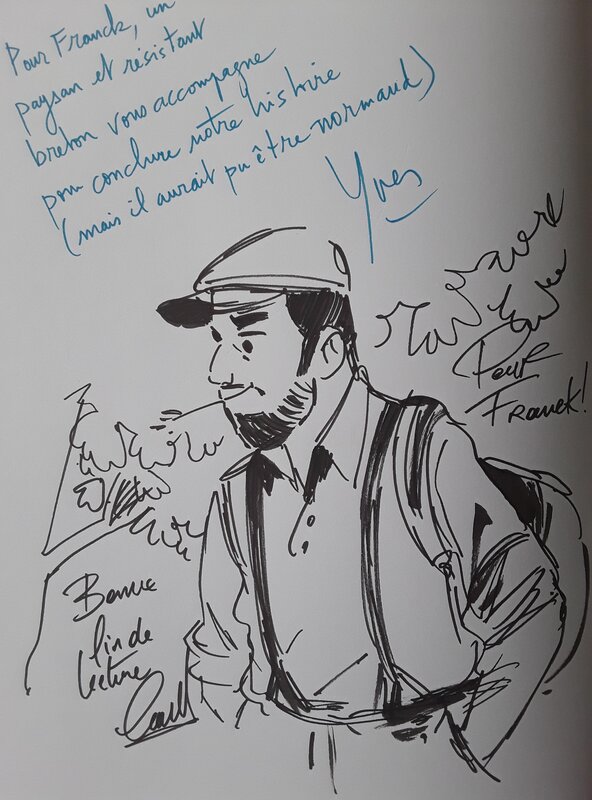 Pour Franck, un
paysan et résistant
breton vous accompagne
pour conclure notre histoire
(mais il aurait pu être normand)
Yves
Pour
Franck!
Bonne
fin de
lecture